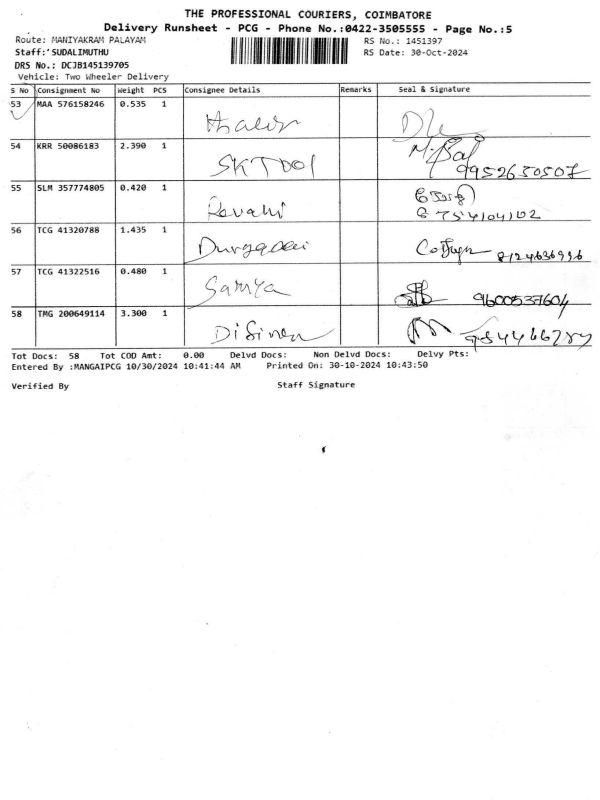 THE PROFESSIONAL COURIERS, COIMBATORE
Delivery Runsheet - PCG - Phone No.:0422-3505555 - Page No.:5
Route: MANIYAKRAM PALAYAM
RS No.: 1451397
Staff: SUDALIMUTHU
RS Date: 30-Oct-2024
DRS No.: DCJB145139705
Vehicle: Two Wheeler Delivery
S No Consignment No Weight PCS Consignee Details Remarks Seal & Signature
53 MAA 576158246 0.535 1
54 KRR 50086183 2.390 1 SK TOOl 9952630507
55 SLM 357774805 0.420 1 Revathi
56 TCG 41320788 1.435 1 8124636996
57 TCG 41322516 0.480 1 Samya 9600537604
58 TMG 200649114 3.300 1
Tot Docs: 58 Tot COD Amt: 0.00 Delvd Docs: Non Delvd Docs: Delvy Pts:
Entered By :MANGAIPCG 10/30/2024 10:41:44 AM Printed On: 30-10-2024 10:43:50
Verified By Staff Signature